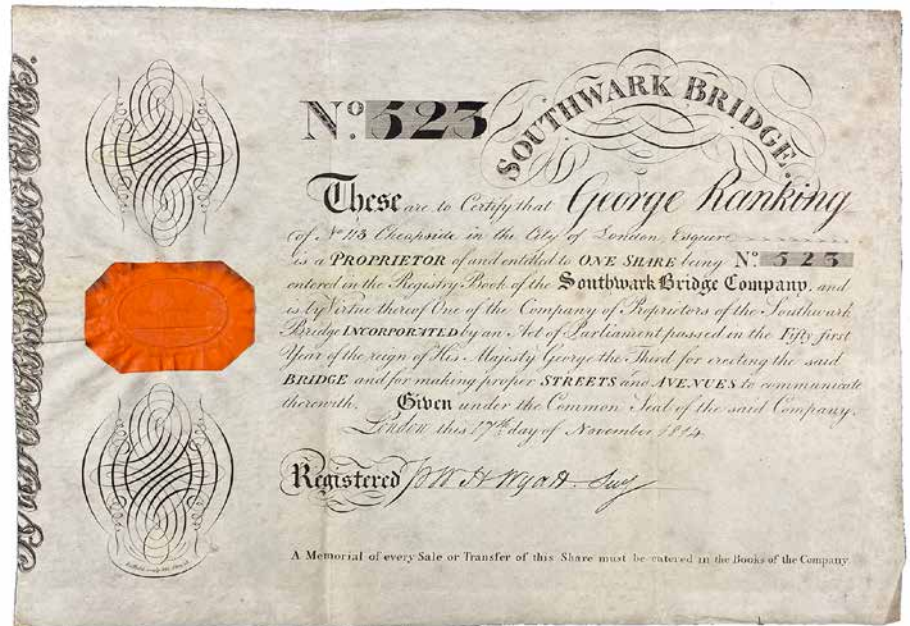 No. 523
SOUTHWARK BRIDGE.
These are to Certify that George Ranking
of No. 113 Cheapside in the City of London, Esquire
is a PROPRIETOR of and entitled to ONE SHARE being No. 523
entered in the Registry Book of the Southwark Bridge Company, and
is by Virtue thereof One of the Company of Proprietors of the Southwark
Bridge INCORPORATED by an Act of Parliament passed in the Fifty first
Year of the reign of His Majesty George the Third for erecting the said
BRIDGE and for making proper STREETS and AVENUES to communicate
therewith. Given under the Common Seal of the said Company.
London this 17th day of November 1814.
Registered W H Wyatt Secy
A Memorial of every Sale or Transfer of this Share must be entered in the Books of the Company